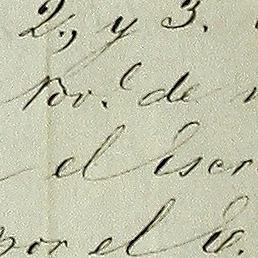 2., y 3.
Nov.e de
el Escr
por el E.